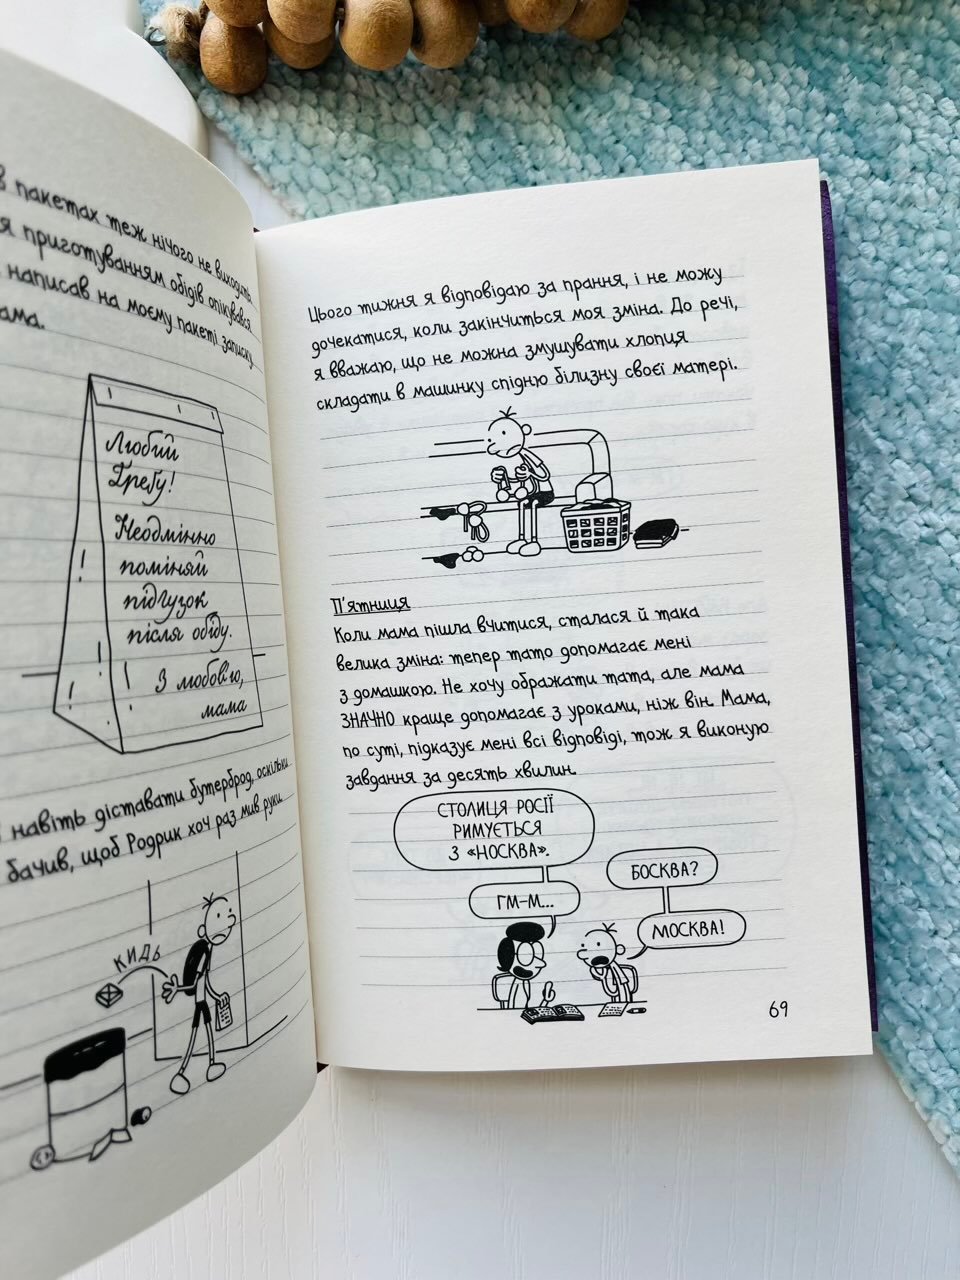 в пакетах теж нічого не виходить.
я приготуванням обідів опікувався
написав на моєму пакеті записку
ама.
Любий
Ґреґу!
Неодмінно
поміняй
підгузок
після обіду.
З любов'ю,
мама
навіть діставати бутерброд, оскільки
бачив, щоб Родрик хоч раз мив руки.
КИДЬ
Цього тижня я відповідаю за прання, і не можу
дочекатися, коли закінчиться моя зміна. До речі,
я вважаю, що не можна змушувати хлопця
складати в машинку спідню білизну своєї матері.
П'ятниця
Коли мама пішла вчитися, сталася й така
велика зміна: тепер тато допомагає мені
з домашкою. Не хочу ображати тата, але мама
ЗНАЧНО краще допомагає з уроками, ніж він. Мама,
по суті, підказує мені всі відповіді, тож я виконую
завдання за десять хвилин.
СТОЛИЦЯ РОСІЇ
РИМУЄТЬСЯ
З «НОСКВА».
ГМ-М...
БОСКВА?
МОСКВА!
69